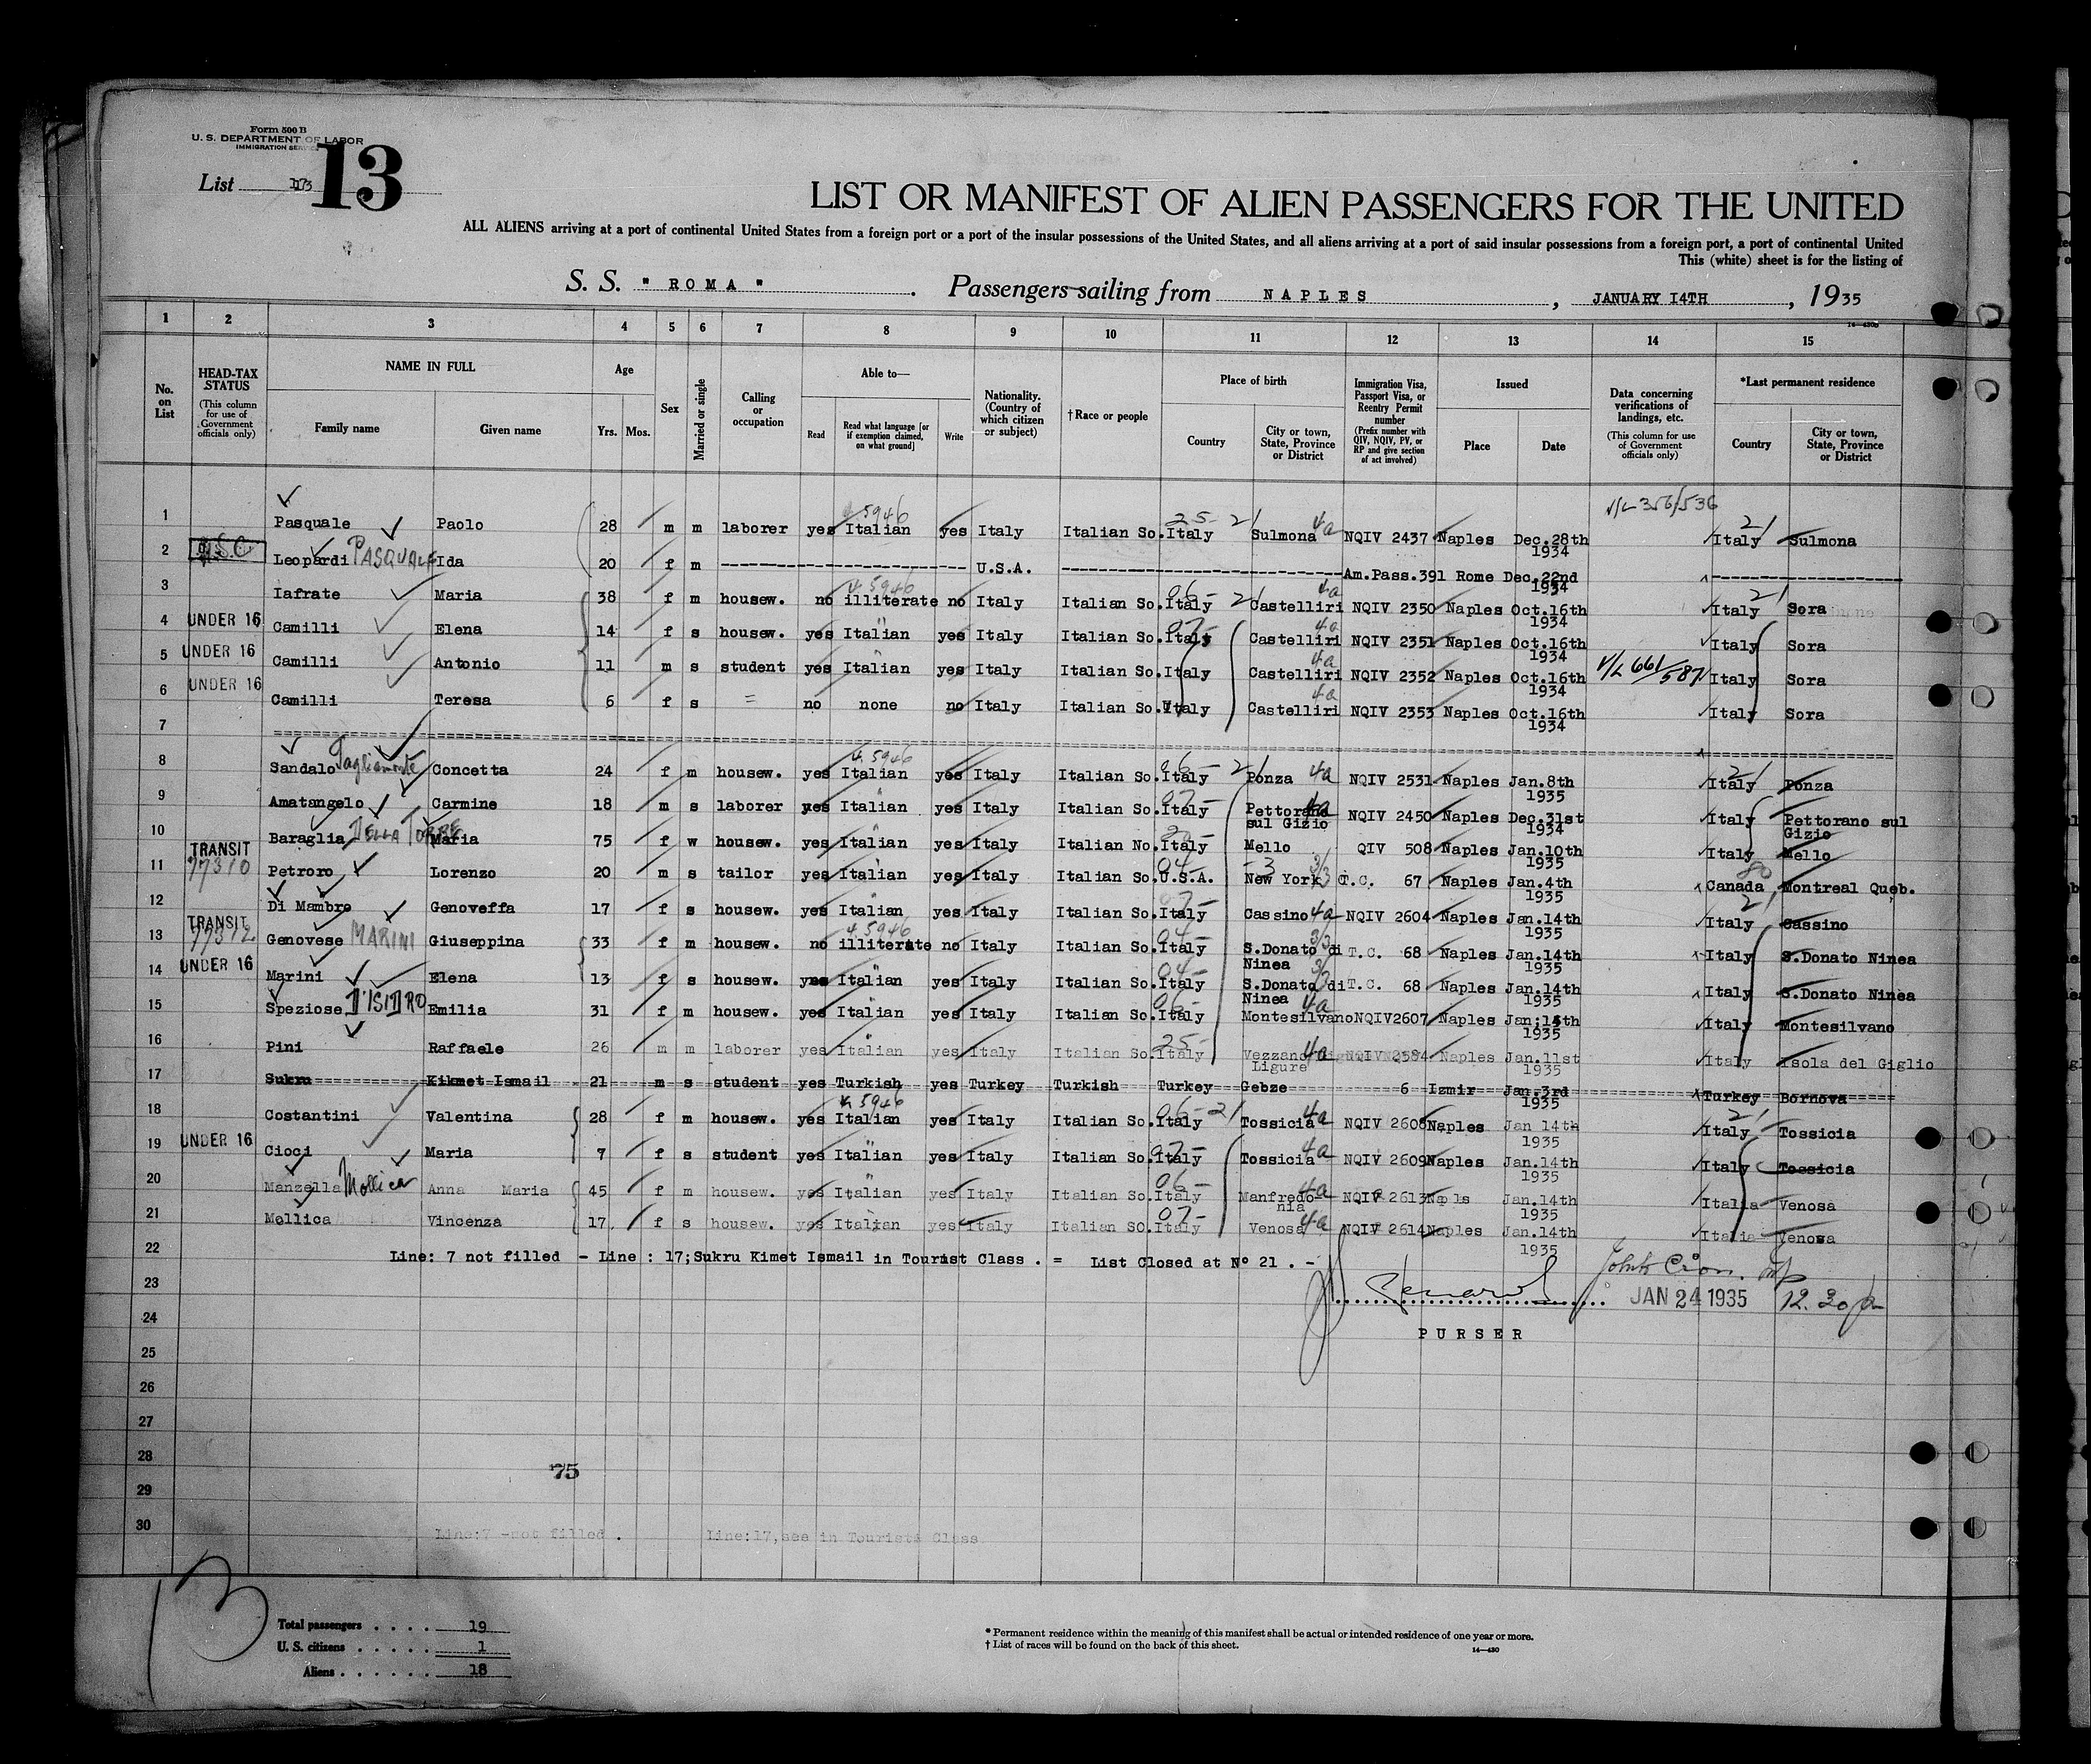 Form 500 B
U. S. DEPARTMENT OF LABOR
IMMIGRATION SERVICE
List 13
LIST OR MANIFEST OF ALIEN PASSENGERS FOR THE UNITED
ALL ALIENS arriving at a port of continental United States from a foreign port or a port of the insular possessions of the United States, and all aliens arriving at a port of said insular possessions from a foreign port, a port of continental United
This (white) sheet is for the listing of
S. S. " ROMA " . Passengers sailing from NAPLES , JANUARY I4TH , 1935
1 2 3 4 5 6 7 8 9 10 11 12 13 14 15
No. on List
HEAD-TAX STATUS (This column for use of Government officials only)
NAME IN FULL Family name Given name
Age Yrs. Mos.
Sex
Married or single
Calling or occupation
Able to— Read Read what language [or if exemption claimed, on what ground] Write
Nationality. (Country of which citizen or subject)
†Race or people
Place of birth Country City or town, State, Province or District
Immigration Visa, Passport Visa, or Reentry Permit number (Prefix number with QIV, NQIV, PV, or RP and give section of act involved)
Issued Place Date
Data concerning verifications of landings, etc. (This column for use of Government officials only)
*Last permanent residence Country City or town, State, Province or District
V/L 356/536
1 Pasquale Paolo 28 m m laborer yes Italian yes Italy Italian So. Italy Sulmona 4a NQIV 2437 Naples Dec.28th 1934 Italy Sulmona
2 Leopardi PASQUALE Ida 20 f m U.S.A. Am.Pass.391 Rome Dec.22nd 1934
3 Iafrate Maria 38 f m housew. no illiterate no Italy Italian So. Italy Castelliri 4a NQIV 2350 Naples Oct.16th 1934 Italy Sora
4 UNDER 16 Camilli Elena 14 f s housew. yes Italian yes Italy Italian So. Italy Castelliri 4a NQIV 2351 Naples Oct.16th 1934 Italy Sora
5 UNDER 16 Camilli Antonio 11 m s student yes Italian yes Italy Italian So. Italy Castelliri 4a NQIV 2352 Naples Oct.16th 1934 V/L 661/587 Italy Sora
6 UNDER 16 Camilli Teresa 6 f s = no none no Italy Italian So. Italy Castelliri 4a NQIV 2353 Naples Oct.16th 1934 Italy Sora
7
8 Sandalo Concetta 24 f m housew. yes Italian yes Italy Italian So. Italy Ponza 4a NQIV 2531 Naples Jan.8th 1935 Italy Ponza
9 Amatangelo Carmine 18 m s laborer yes Italian yes Italy Italian So. Italy Pettorano sul Gizio NQIV 2450 Naples Dec.31st 1934 Italy Pettorano sul Gizio
10 Baraglia DELLA TORRE Maria 75 f w housew. yes Italian yes Italy Italian No. Italy Mello QIV 508 Naples Jan.10th 1935 Italy Mello
11 TRANSIT 77310 Petroro Lorenzo 20 m s tailor yes Italian yes Italy Italian So. U.S.A. New York T.C. 67 Naples Jan.4th 1935 Canada Montreal Queb.
12 Di Mambro Genoveffa 17 f s housew. yes Italian yes Italy Italian So. Italy Cassino 4a NQIV 2604 Naples Jan.14th 1935 Italy Cassino
13 TRANSIT 77312 Genovese MARINI Giuseppina 33 f m housew. no illiterate no Italy Italian So. Italy S.Donato di Ninea T.C. 68 Naples Jan.14th 1935 Italy S.Donato Ninea
14 UNDER 16 Marini Elena 13 f s housew. yes Italian yes Italy Italian So. Italy S.Donato di Ninea T.C. 68 Naples Jan.14th 1935 Italy S.Donato Ninea
15 Speziose D'ISIDRO Emilia 31 f m housew. yes Italian yes Italy Italian So. Italy Montesilvano 4a NQIV2607 Naples Jan.15th 1935 Italy Montesilvano
16 Pini Raffaele 26 m m laborer yes Italian yes Italy Italian So. Italy Vezzano Ligure 4a NQIV 2584 Naples Jan.11st 1935 Italy Isola del Giglio
17 Sukru Kikmet Ismail 21 m s student yes Turkish yes Turkey Turkish Turkey Gebze 6 Izmir Jan.3rd 1935 Turkey Bornova
18 Costantini Valentina 28 f m housew. yes Italian yes Italy Italian So. Italy Tossicia 4a NQIV 2608 Naples Jan 14th 1935 Italy Tossicia
19 UNDER 16 Cioci Maria 7 f s student yes Italian yes Italy Italian So. Italy Tossicia 4a NQIV 2609 Naples Jan.14th 1935 Italy Tossicia
20 Manzella Mollica Anna Maria 45 f m housew. yes Italian yes Italy Italian So. Italy Manfredonia 4a NQIV 2613 Napls Jan.14th 1935 Italia Venosa
21 Mollica Vincenza 17 f s housew. yes Italian yes Italy Italian SO. Italy Venosa 4a NQIV 2614 Naples Jan.14th 1935 Italia Venosa
22 Line: 7 not filled - Line : 17;Sukru Kimet Ismail in Tourist Class . = List Closed at Nº 21 . -
23 JAN 24 1935 12.30 p
24 PURSER
25
26
27
28 75
29
30 Line:7 -not filled . Line:17,see in Tourists Class
13
Total passengers . . . . 19
U. S. citizens . . . . . 1
Aliens . . . . . . 18
* Permanent residence within the meaning of this manifest shall be actual or intended residence of one year or more.
† List of races will be found on the back of this sheet.
14—430